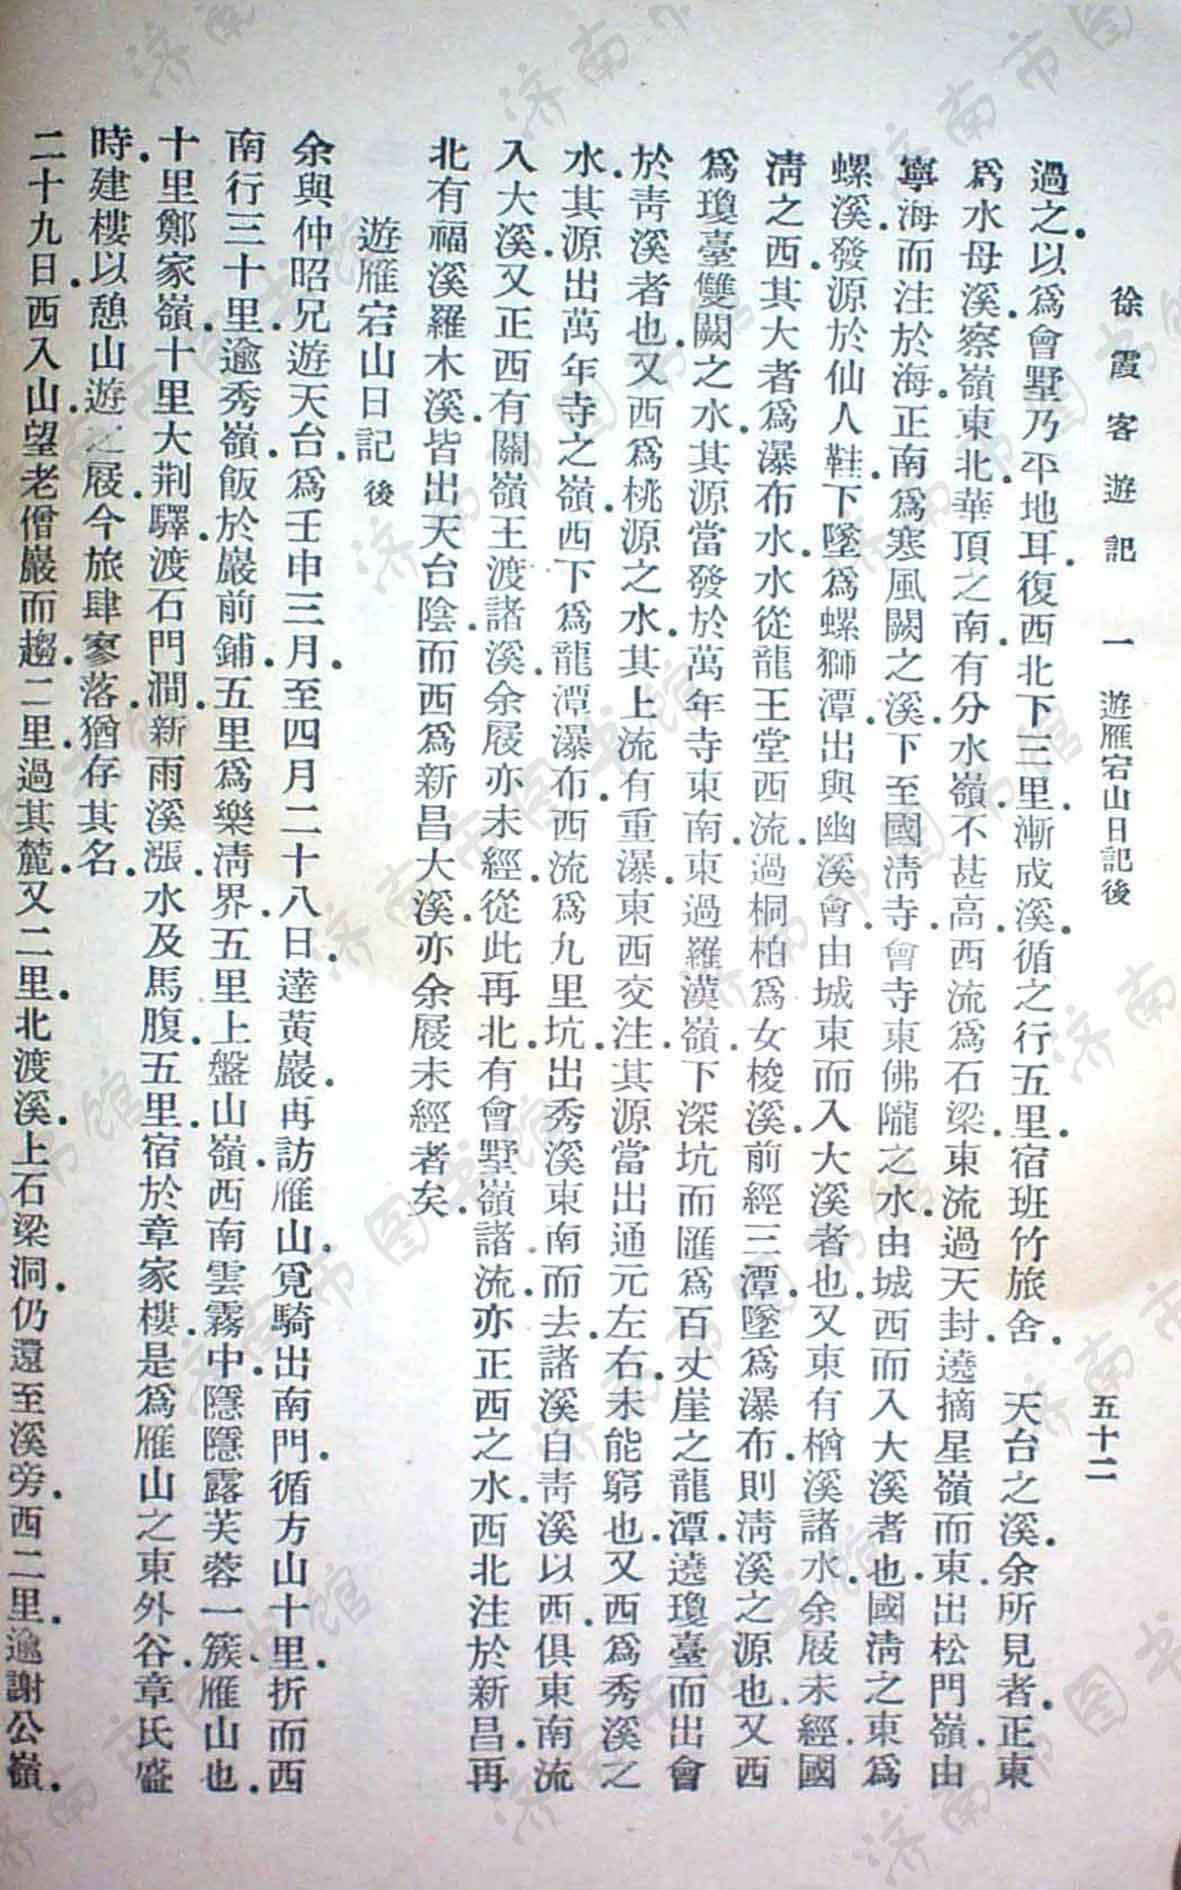 徐霞客遊記 一 遊雁宕山日記後 五十二
過之以爲會墅乃平地耳復西北下三里漸成溪循之行五里宿班竹旅舍 天台之溪余所見者正東
爲水母溪察嶺東北華頂之南有分水嶺不甚高西流爲石梁東流過天封遶摘星嶺而東出松門嶺由
寧海而注於海正南爲寒風闕之溪下至國淸寺會寺東佛隴之水由城西而入大溪者也國淸之東爲
螺溪發源於仙人鞋下墜爲螺獅潭出與幽溪會由城東而入大溪者也又東有楢溪諸水余屐未經國
淸之西其大者爲瀑布水水從龍王堂西流過桐柏爲女梭溪前經三潭墜爲瀑布則淸溪之源也又西
爲瓊臺雙闕之水其源當發於萬年寺東南東過羅漢嶺下深坑而匯爲百丈崖之龍潭遶瓊臺而出會
於靑溪者也又西爲桃源之水其上流有重瀑東西交注其源當出通元左右未能窮也又西爲秀溪之
水其源出萬年寺之嶺西下爲龍潭瀑布西流爲九里坑出秀溪東南而去諸溪自靑溪以西俱東南流
入大溪又正西有關嶺王渡諸溪余屐亦未經從此再北有會墅嶺諸流亦正西之水西北注於新昌再
北有福溪羅木溪皆出天台陰而西爲新昌大溪亦余屐未經者矣
遊雁宕山日記後
余與仲昭兄遊天台爲壬申三月至四月二十八日達黃巖再訪雁山覓騎出南門循方山十里折而西
南行三十里逾秀嶺飯於巖前鋪五里爲樂淸界五里上盤山嶺西南雲霧中隱隱露芙蓉一簇雁山也
十里鄭家嶺十里大荆驛渡石門澗新雨溪漲水及馬腹五里宿於章家樓是爲雁山之東外谷章氏盛
時建樓以憩山遊之屐今旅肆寥落猶存其名
二十九日西入山望老僧巖而趨二里過其麓又二里北渡溪上石梁洞仍還至溪旁西二里逾謝公嶺